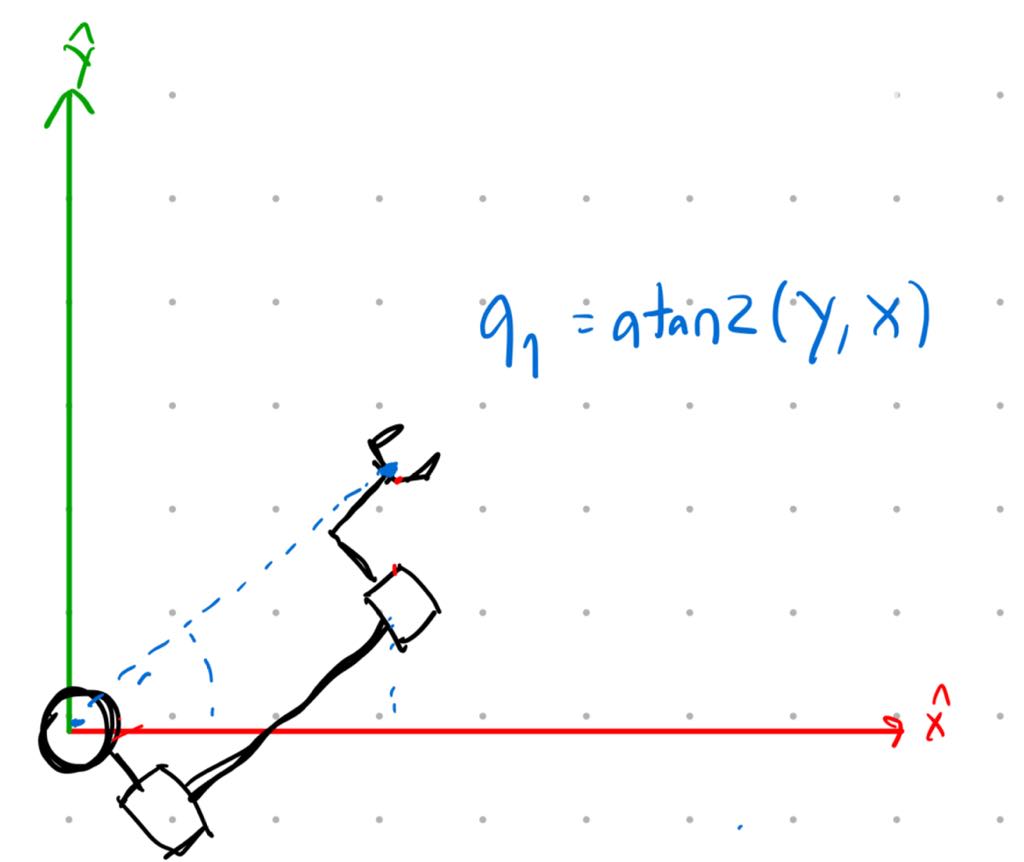 Ŷ
q₁ = atan2(y, x)
X̂